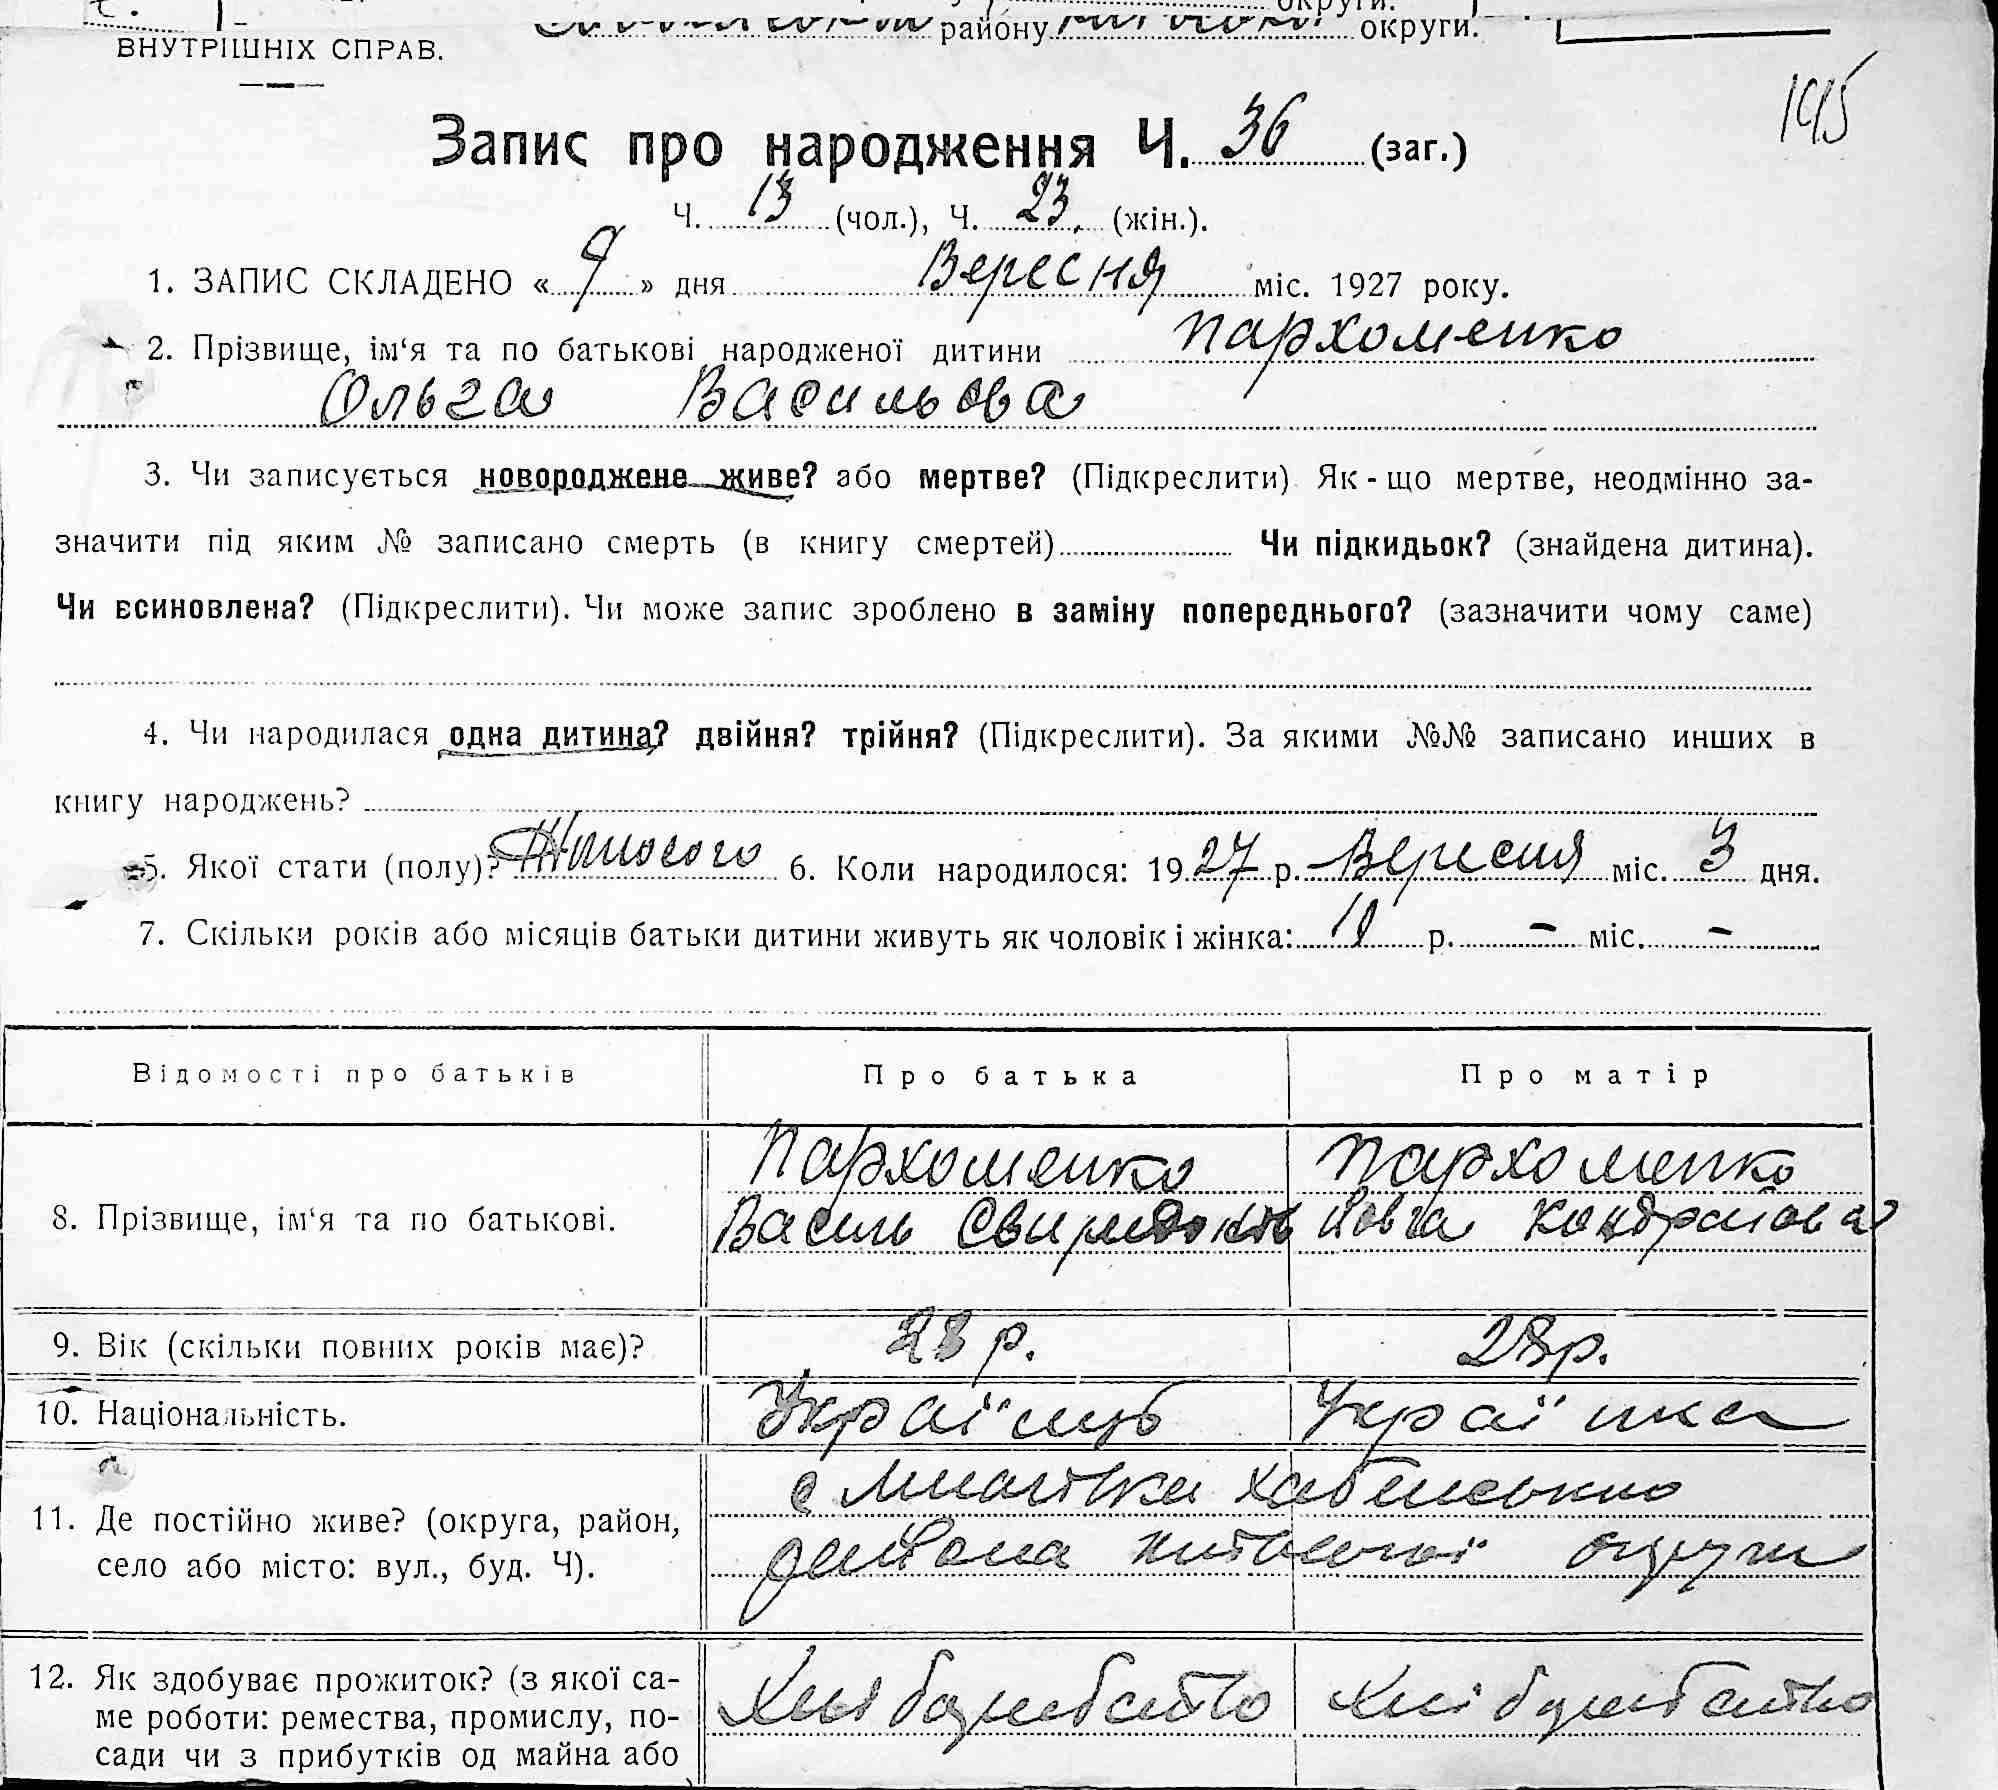 округи.
району округи.
ВНУТРІШНІХ СПРАВ.
195
Запис про народження Ч. 36 (заг.)
Ч. 13 (чол.), Ч. 23. (жін.).
1. ЗАПИС СКЛАДЕНО « 9 » дня Вересня міс. 1927 року.
2. Прізвище, ім‘я та по батькові народженої дитини Пархоменко
Ольга Васильова
3. Чи записується новороджене живе? або мертве? (Підкреслити) Як-що мертве, неодмінно за-
значити під яким № записано смерть (в книгу смертей) Чи підкидьок? (знайдена дитина).
Чи всиновлена? (Підкреслити). Чи може запис зроблено в заміну попереднього? (зазначити чому саме)
4. Чи народилася одна дитина? двійня? трійня? (Підкреслити). За якими №№ записано инших в
книгу народжень?
5. Якої стати (полу)? Жиночого 6. Коли народилося: 1927 р. Вересня міс. 3 дня.
7. Скільки років або місяців батьки дитини живуть як чоловік і жінка: р. – міс. –
Відомості про батьків Про батька Про матір
8. Прізвище, ім‘я та по батькові. Пархоменко Пархоменко
Василь Кондратова
9. Вік (скільки повних років має)? 28 р. 28 р.
10. Національність. Українць Українка
11. Де постійно живе? (округа, район, село або місто: вул., буд. Ч). с Хабенського
району округи
12. Як здобуває прожиток? (з якої са-
ме роботи: ремества, промислу, по-
сади чи з прибутків од майна або
Хліборобство Хліборобство